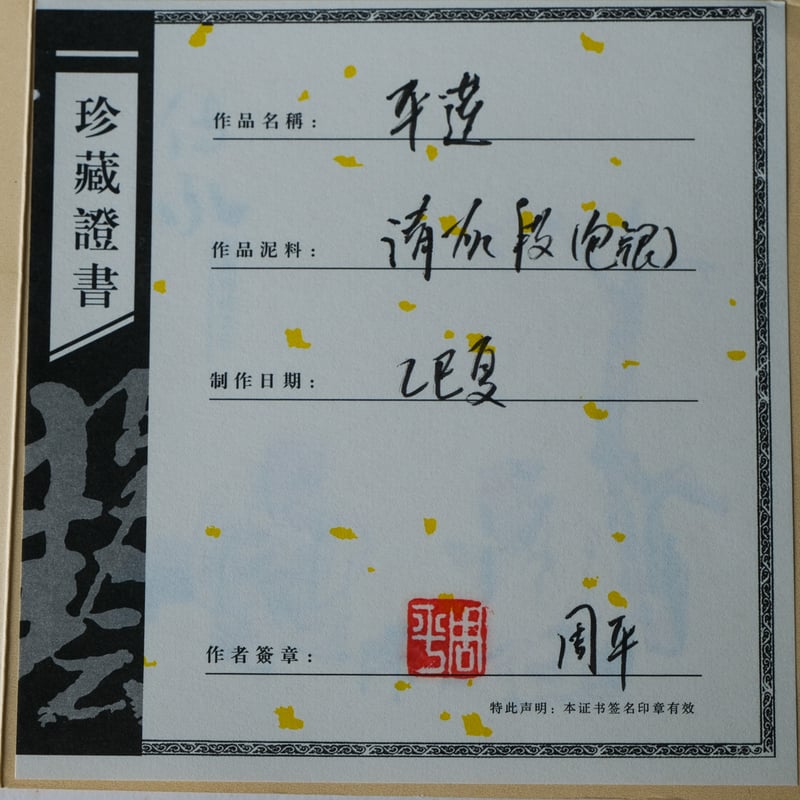 珍藏證書
作品名稱： 平蓮
作品泥料： 清灰段（包銀）
制作日期： 乙巳夏
作者簽章： 周平 周平
特此声明：本证书签名印章有效